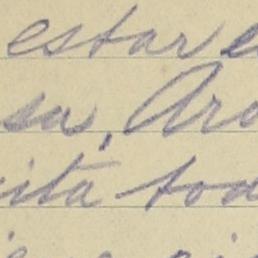 estar e
sa, Ara
ita tod